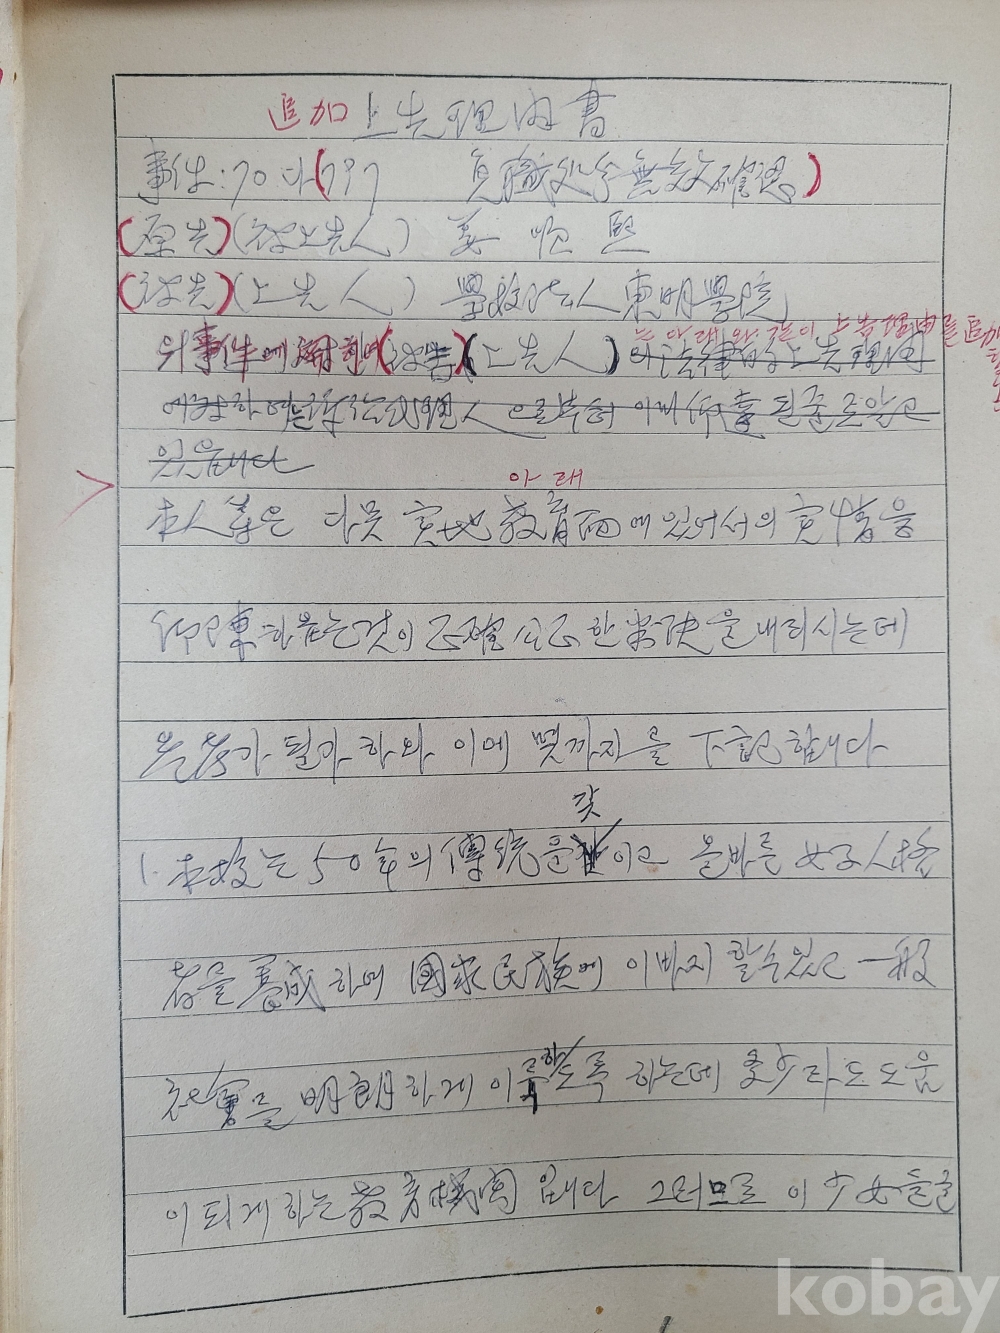 追加 上告理由書
事件: 70 다 1797 免職処分無効確認
(原告) (被上告人) 姜 順 熙
(被告) (上告人) 學校法人 東明學院
는 아래와 같이 上告理由를 追加
위 事件에 關하여 (被告) (上告人) 法律的 上告理由
에 對하여는 訴訟代理人으로부터 이미 仰書 된줄로 알고
있읍니다
아래
本人等은 다못 実地 敎育面에 있어서의 実情을
仰陳하옵는것이 正確公正한 判決을 내리시는데
参考가 될가 하와 이에 몇까지를 下記합니다
갖
1. 本校는 50年의 傳統을 이고 올바른 女子人格
者를 養成하여 國家民族에 이바지 할수있고 一般
하
社會를 明朗하게 이룩도록 하는데 多少라도 도움
이 되게하는 敎育機関입니다 그러므로 이 少女들을
kobay